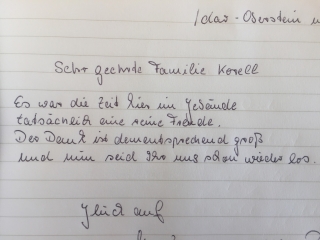 Idar-Oberstein
Sehr geehrte Familie Korell
Es war die Zeit hier im Gebäude
tatsächlich eine reine Freude.
Der Dank ist dementsprechend groß
und nun seid Ihr uns schon wieder los.
Glück auf